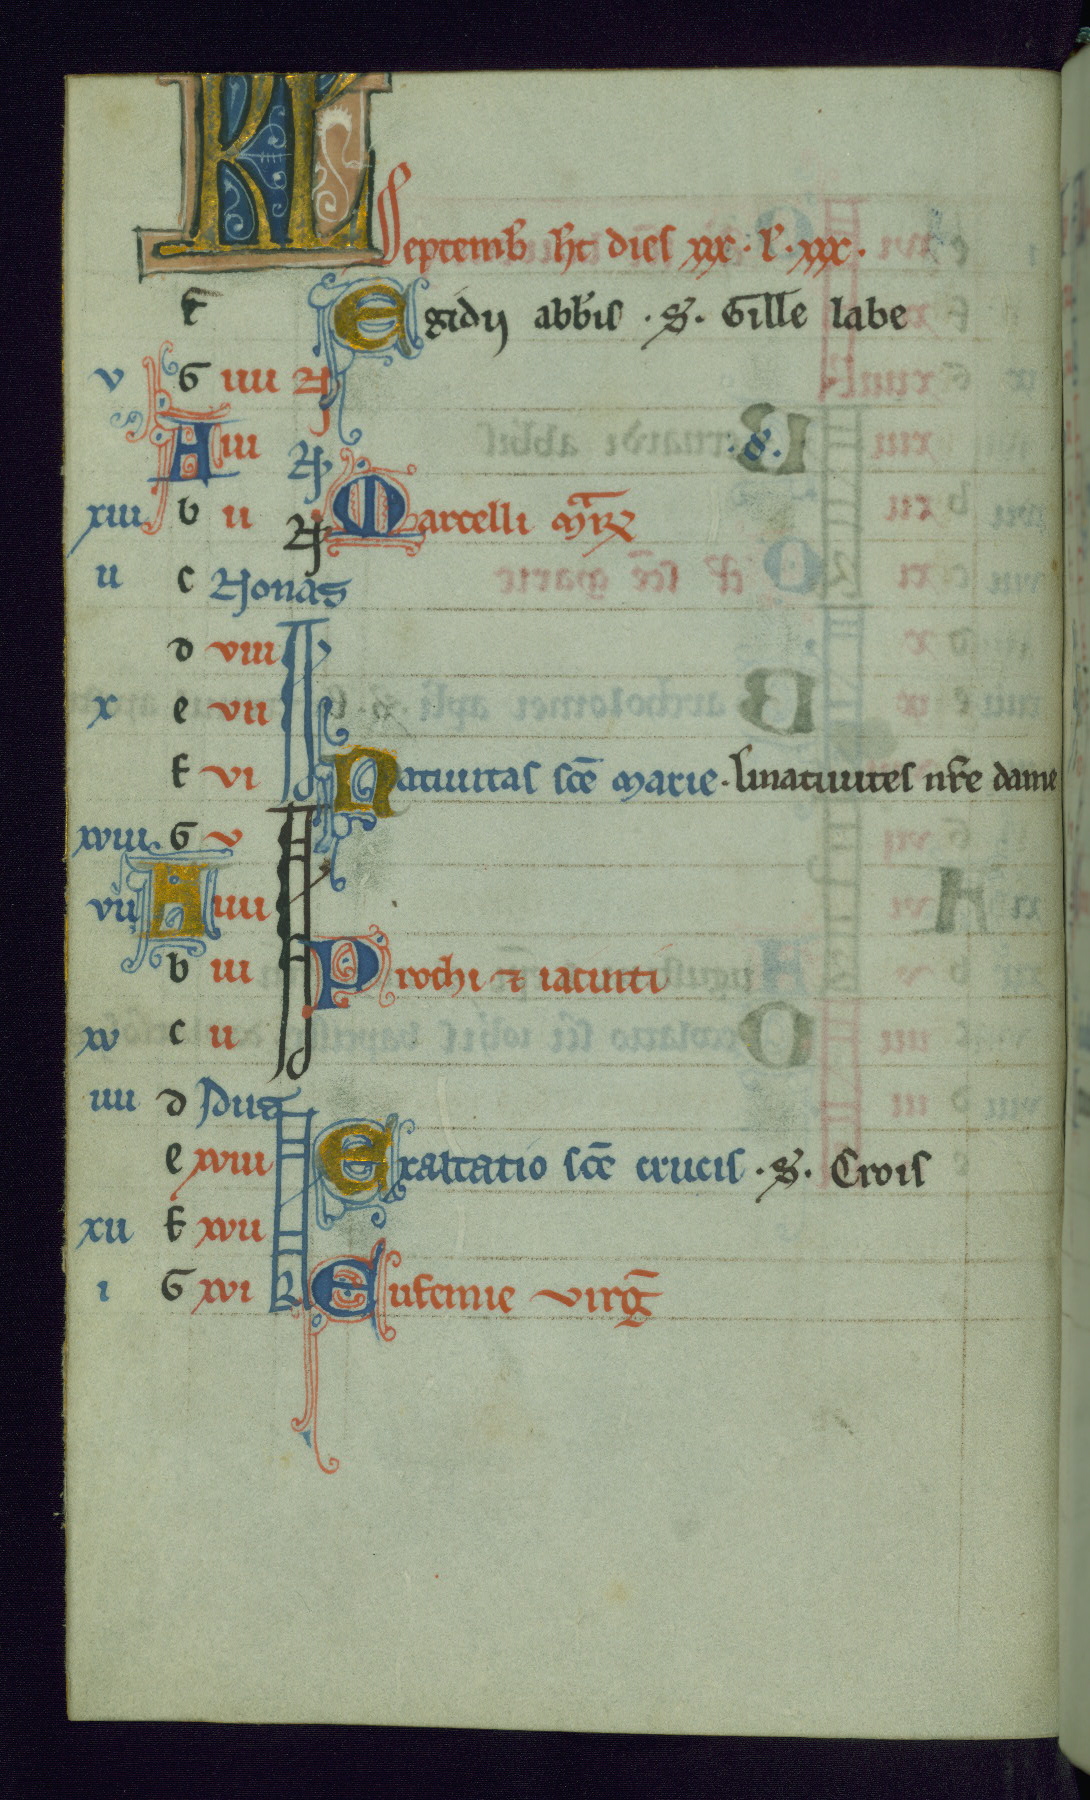 KL Septemb̄ ht dies xxx · l' · xxx ·
f Egidij abb̄is · S · Gille labe
v G iiii N
A iii N
xiii b ii N Marcelli m̄r
ii c Nonas
d viii
x e vii
f vi Natiuitas sc̄e marie · linatiuites nr̄e dame
xviii G v
vii A iiii
b iii Prochi ⁊ iacincti
xv c ii
iiii d Idus
e xviii Exaltatio sc̄e crucis · S · Crois
xii f xvii
i G xvi Eufemie virḡ